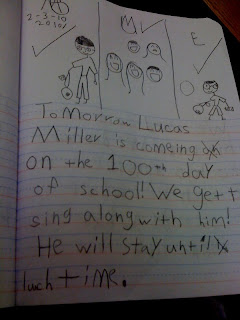 M E
2-3-10
ToMorrow Lucas
Miller is comeing
on the 100th day
of school! We get t
sing along with him!
He will stay until
luch time.